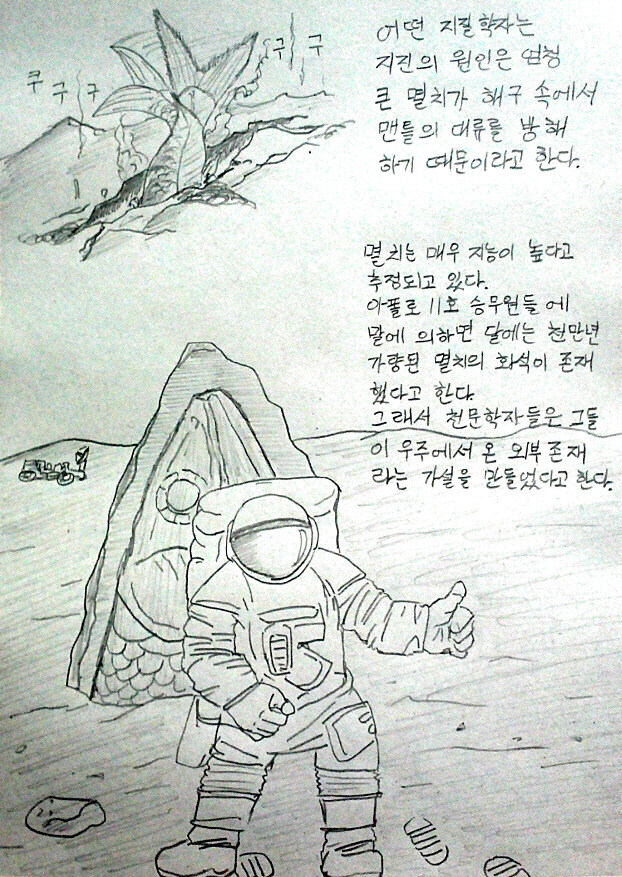 쿠 구 구
구 구
어떤 지질학자는
지진의 원인은 엄청
큰 멸치가 해구 속에서
맨틀의 대류를 방해
하기 때문이라고 한다.
멸치는 매우 지능이 높다고
추정되고 있다.
아폴로 11호 승무원들 에
말에 의하면 달에는 천만년
가량된 멸치의 화석이 존재
했다고 한다.
그래서 천문학자들은 그들
이 우주에서 온 외부존재
라는 가설을 만들었다고 한다.